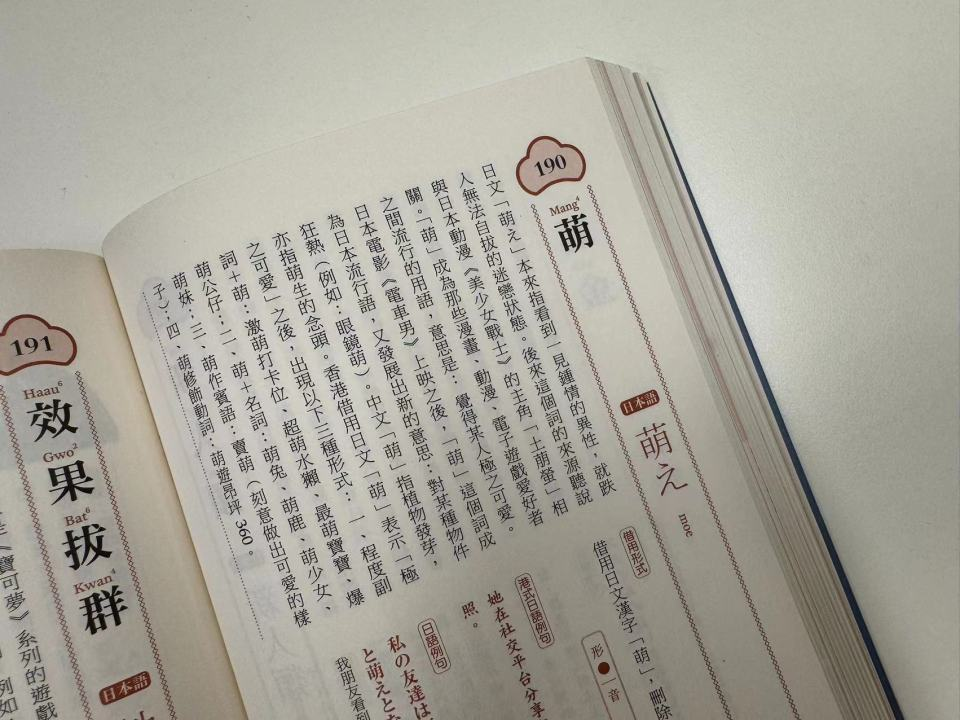 190
Mang⁴
萌
日本語
萌え
moe
借用形式
借用日文漢字「萌」,刪除
形●
音
港式日語例句
她在社交平台分享
照。
日語例句
私の友達は
と萌えと
我朋友看到
日文「萌え」本來指看到一見鍾情的異性,就跌
人無法自拔的迷戀狀態。後來這個詞的來源聽說
與日本動漫《美少女戰士》的主角「土萌螢」相
關。「萌」成為那些漫畫、動漫、電子遊戲愛好者
之間流行的用語,意思是:覺得某人極之可愛。
日本電影《電車男》上映之後,「萌」這個詞成
為日本流行語,又發展出新的意思:對某種物件
狂熱(例如:眼鏡萌)。中文「萌」指植物發芽,
亦指萌生的念頭。香港借用日文「萌」表示「極
之可愛」之後,出現以下三種形式:一、程度副
詞+萌:激萌打卡位、超萌水獺、最萌寶寶、爆
萌公仔;二、萌+名詞:萌兔、萌鹿、萌少女、
萌妹;三、萌作賓語:賣萌(刻意做出可愛的樣
子);四、萌修飾動詞:萌遊昂坪360。
191
Haau⁶
效
Gwo²
果
Bat⁶
拔
Kwan⁴
群
日本語
《寶可夢》系列的遊戲
例如